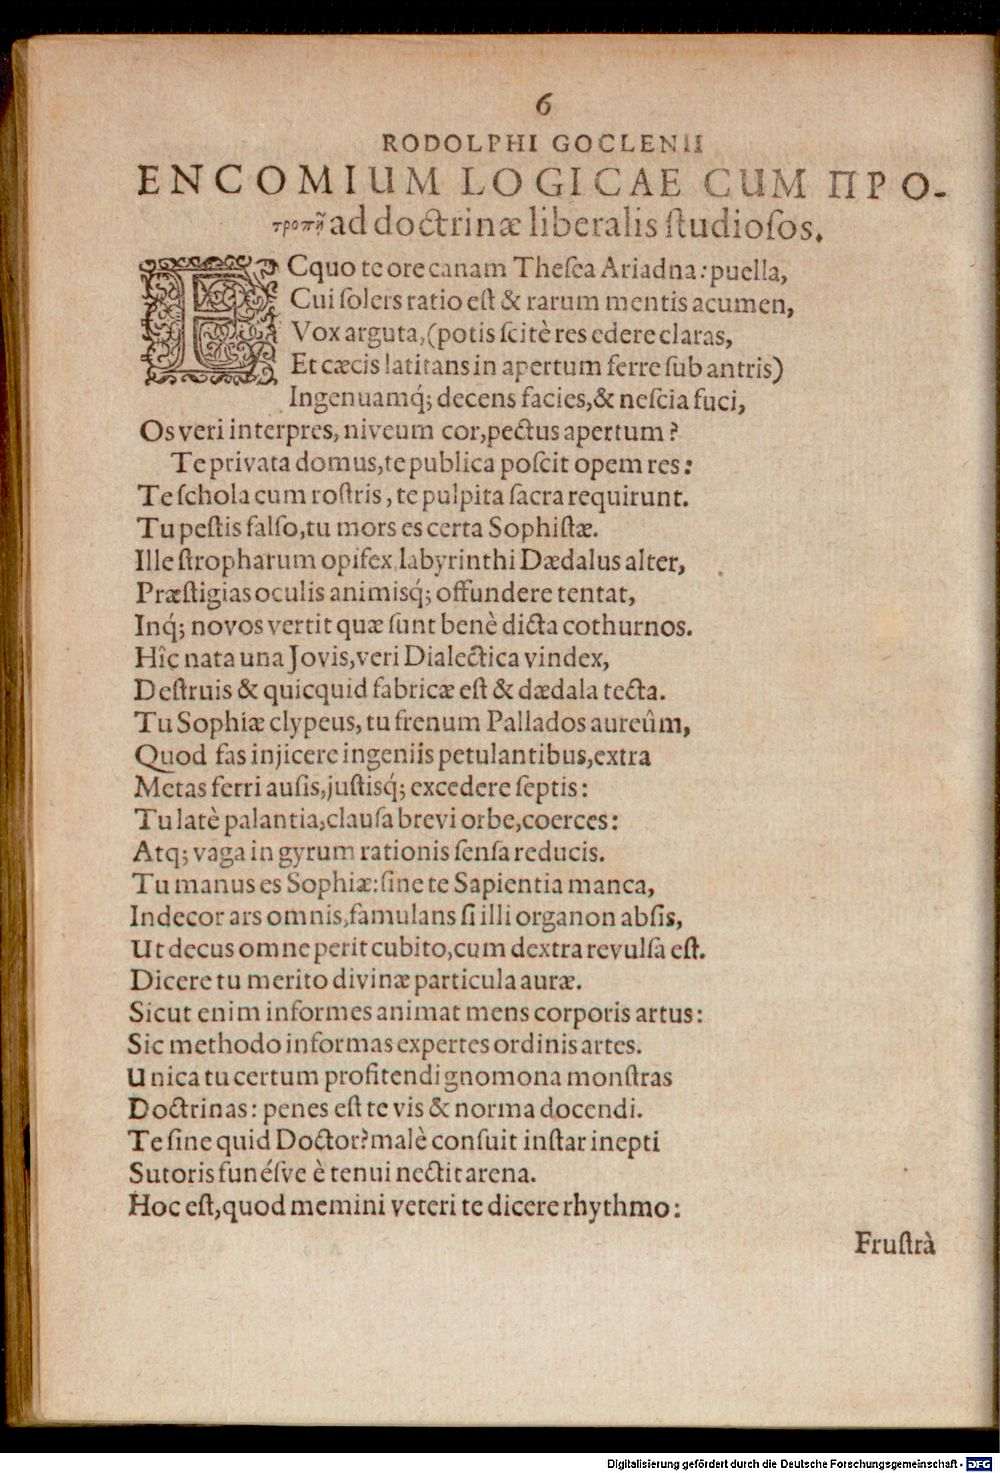 6
RODOLPHI GOCLENII
ENCOMIUM LOGICAE CUM ΠΡΟ-
τροπῇ ad doctrinæ liberalis ſtudioſos.
ECquo te ore canam Theſea Ariadna: puella,
Cui ſolers ratio eſt & rarum mentis acumen,
Vox arguta, (potis ſcitè res edere claras,
Et cæcis latitans in apertum ferre ſub antris)
Ingenuamq́; decens facies, & neſcia fuci,
Os veri interpres, niveum cor, pectus apertum?
Te privata domus, te publica poſcit opem res:
Te ſchola cum roſtris, te pulpita ſacra requirunt.
Tu peſtis falſo, tu mors es certa Sophiſtæ.
Ille ſtropharum opifex, labyrinthi Dædalus alter,
Præſtigias oculis animisq́; offundere tentat,
Inq́; novos vertit quæ ſunt benè dicta cothurnos.
Hîc nata una Jovis, veri Dialectica vindex,
Deſtruis & quicquid fabricæ eſt & dædala tecta.
Tu Sophiæ clypeus, tu frenum Pallados aureûm,
Quod fas injicere ingeniis petulantibus, extra
Metas ferri auſis, juſtisq́; excedere ſeptis:
Tu latè palantia, clauſa brevi orbe, coerces:
Atq; vaga in gyrum rationis ſenſa reducis.
Tu manus es Sophiæ: ſine te Sapientia manca,
Indecor ars omnis, famulans ſi illi organon abſis,
Ut decus omne perit cubito, cum dextra revulſa eſt.
Dicere tu merito divinæ particula auræ.
Sicut enim informes animat mens corporis artus:
Sic methodo informas expertes ordinis artes.
Unica tu certum profitendi gnomona monſtras
Doctrinas: penes eſt te vis & norma docendi.
Te ſine quid Doctor? malè conſuit inſtar inepti
Sutoris funéſve è tenui nectit arena.
Hoc eſt, quod memini veteri te dicere rhythmo:
Fruſtrà
Digitalisierung gefördert durch die Deutsche Forschungsgemeinschaft - DFG